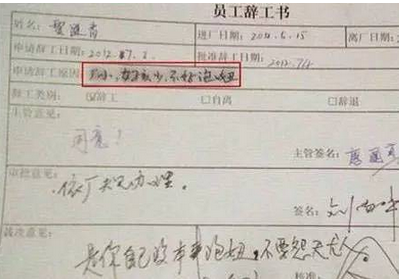 员工辞工书
姓名: 进厂日期: 2012.5.15
申请辞工日期: 2012. 7. 2. 批准辞工日期: 2012.7/4
申请辞工原因: 厂小,女孩少,不好泡妞
辞工类别: ☑辞工 □自离 □辞退
主管意见:
同意!
主管签名:
审批意见:
依厂规办理。
签名:
核准意见:
是你自己没本事泡妞,不要怨天尤人